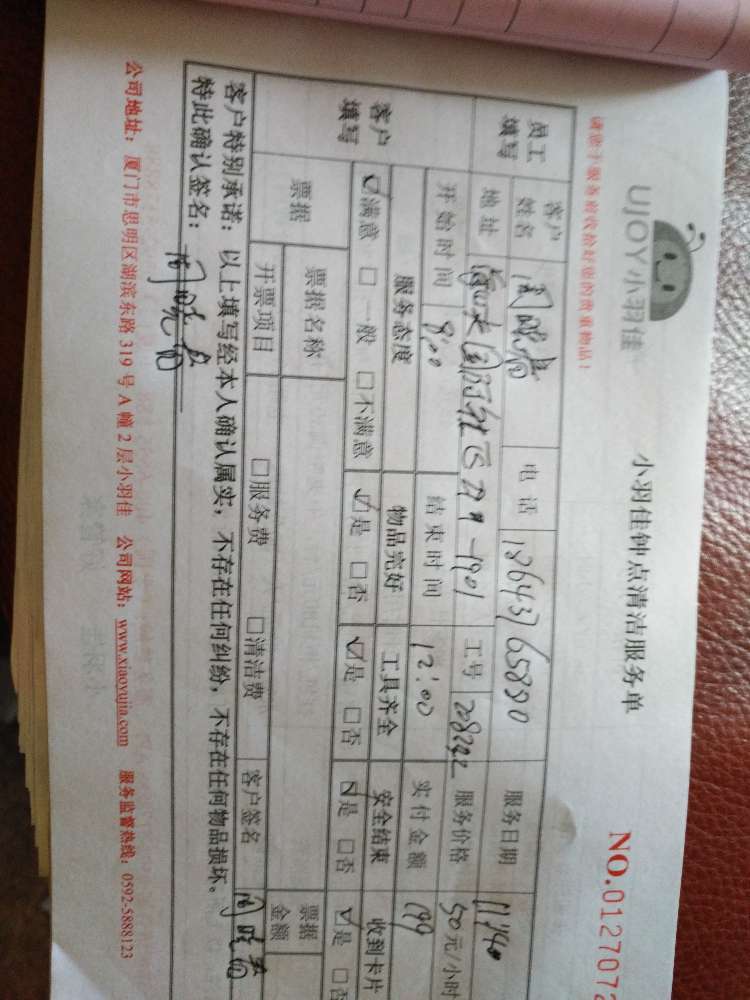 UJOY小羽佳
小羽佳钟点清洁服务单
NO.0127072
请您于服务前收拾好您的贵重物品!
员工填写 客户姓名 电话 服务日期
地址 工号 208292 服务价格 50元/小时
开始时间 8:00 结束时间 12:00 实付金额 199
客户填写 服务态度 物品完好 工具齐全 安全结束 收到卡片
☑满意 □一般 □不满意 ☑是 □否 ☑是 □否 ☑是 □否 ☑是 □否
票据 票据名称 票据金额
开票项目 □服务费 □清洁费 客户签名
客户特别承诺:以上填写经本人确认属实,不存在任何纠纷,不存在任何物品损坏。
特此确认签名:
公司地址:厦门市思明区湖滨东路319号A幢2层小羽佳 公司网站:www.xiaoyujia.com 服务监督热线:0592-5888123